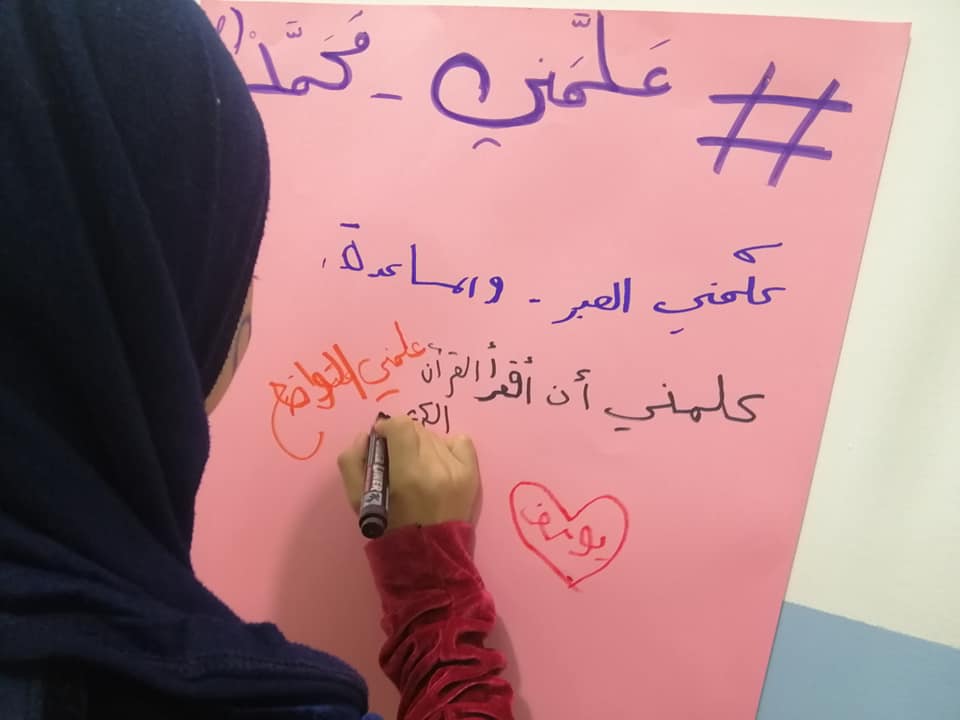 # عَلَّمَني - مُحَمَّد
علّمني الصبر - والمساعدة
علمني أن أقرأ القرآن
علمني التواضع
يوسف